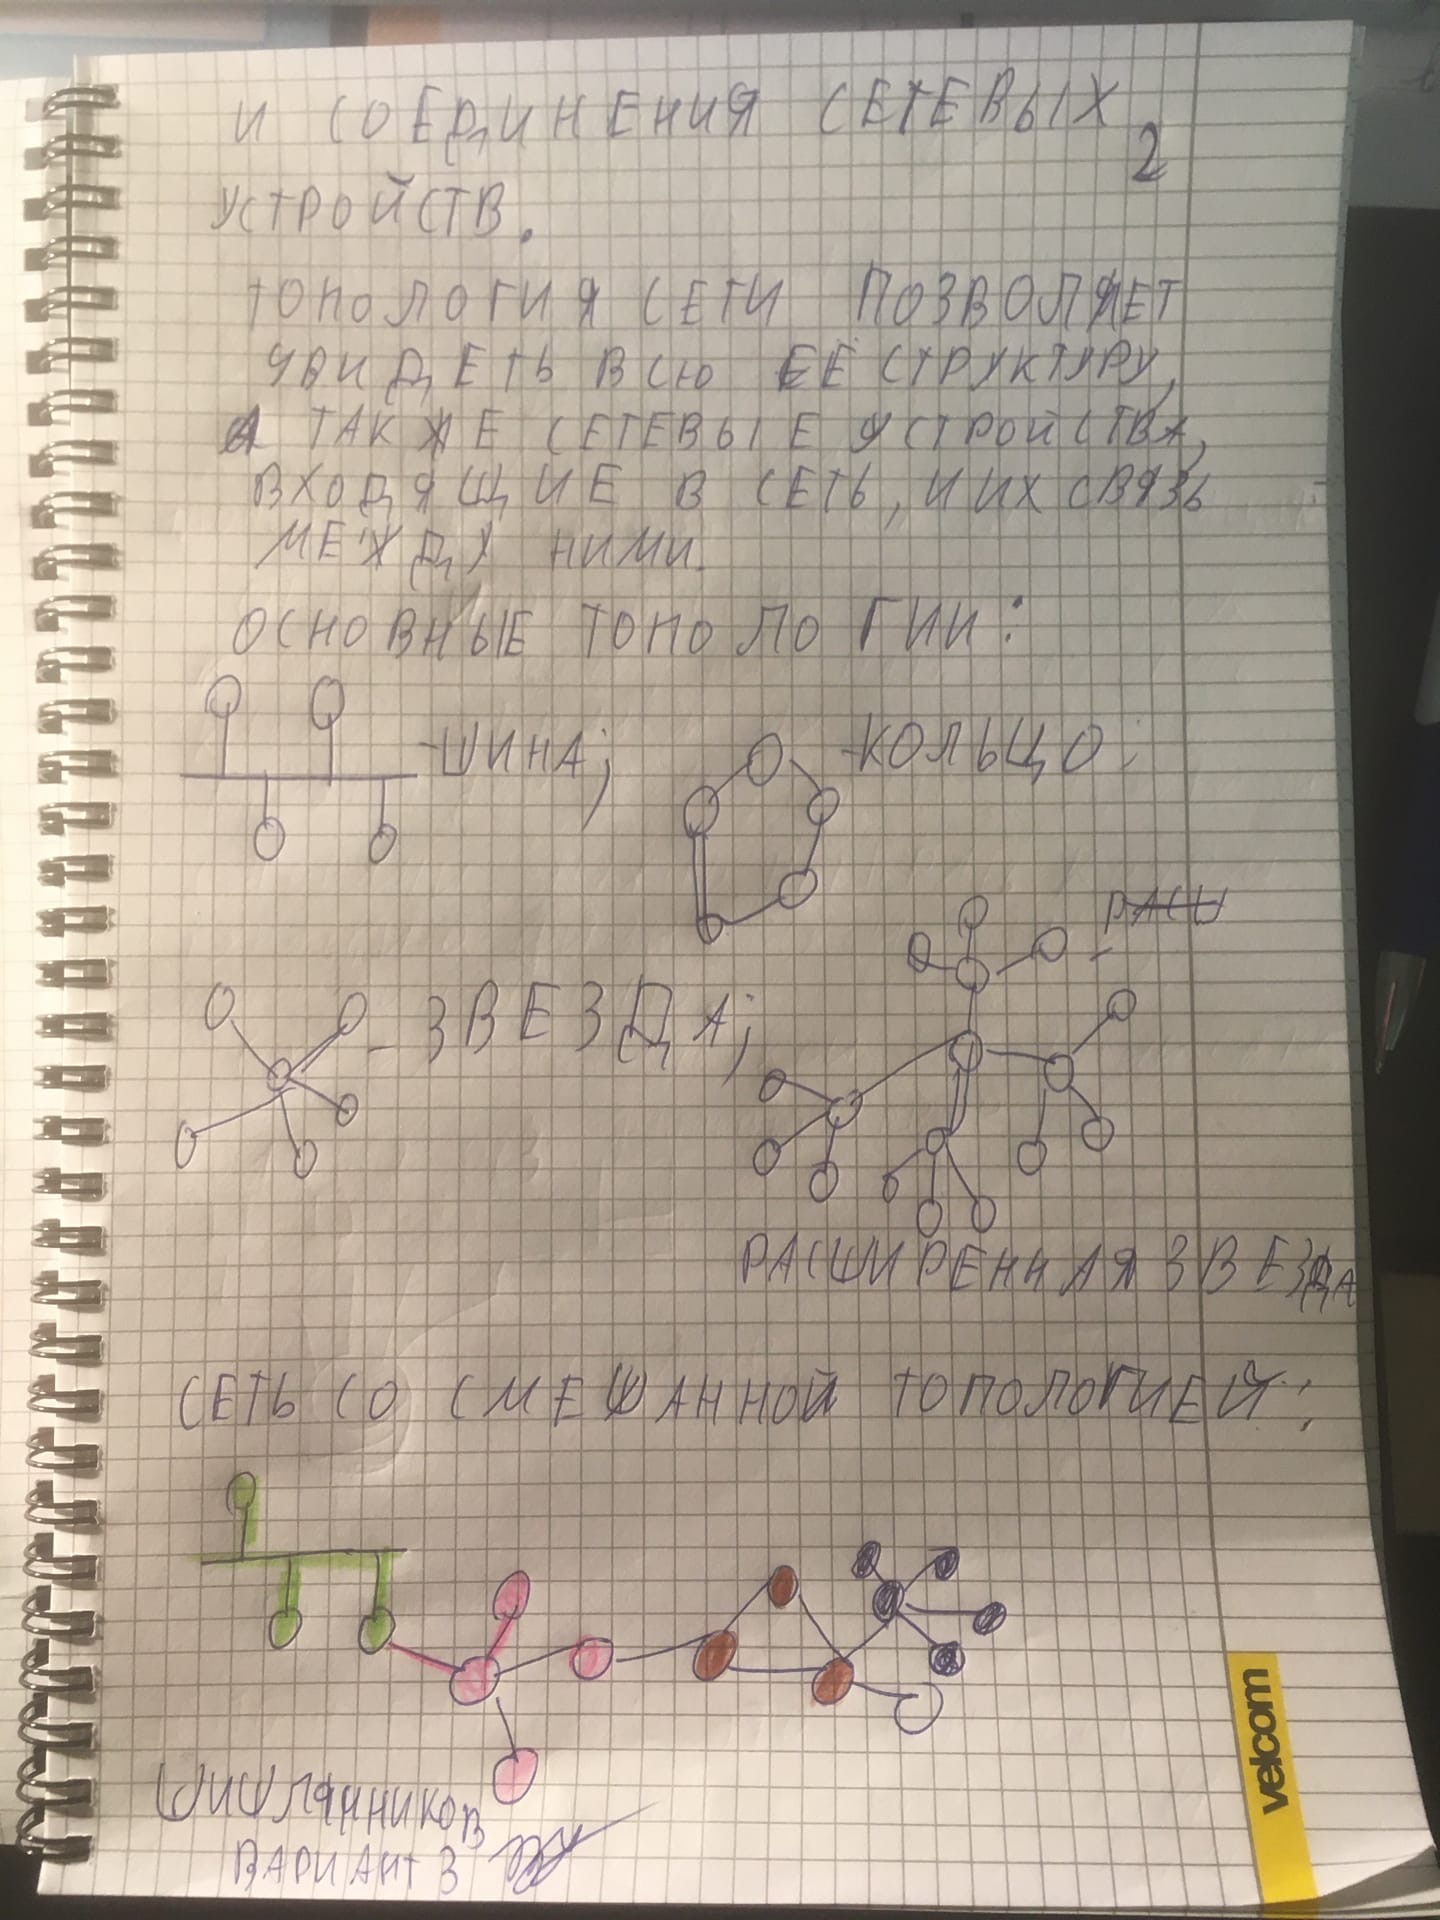 И СОЕДИНЕНИЯ СЕТЕВЫХ
2
УСТРОЙСТВ.
ТОПОЛОГИЯ СЕТИ ПОЗВОЛЯЕТ
УВИДЕТЬ ВСЮ ЕЁ СТРУКТУРУ,
А ТАКЖЕ СЕТЕВЫЕ УСТРОЙСТВА,
ВХОДЯЩИЕ В СЕТЬ, И ИХ СВЯЗЬ
МЕЖДУ НИМИ.
ОСНОВНЫЕ ТОПОЛОГИИ:
-ШИНА;
-КОЛЬЦО;
- РАСШ
- ЗВЕЗДА;
РАСШИРЕННАЯ ЗВЕЗДА
СЕТЬ СО СМЕШАННОЙ ТОПОЛОГИЕЙ:
ШИШЛЯННИКОВ
ВАРИАНТ 3
velcom